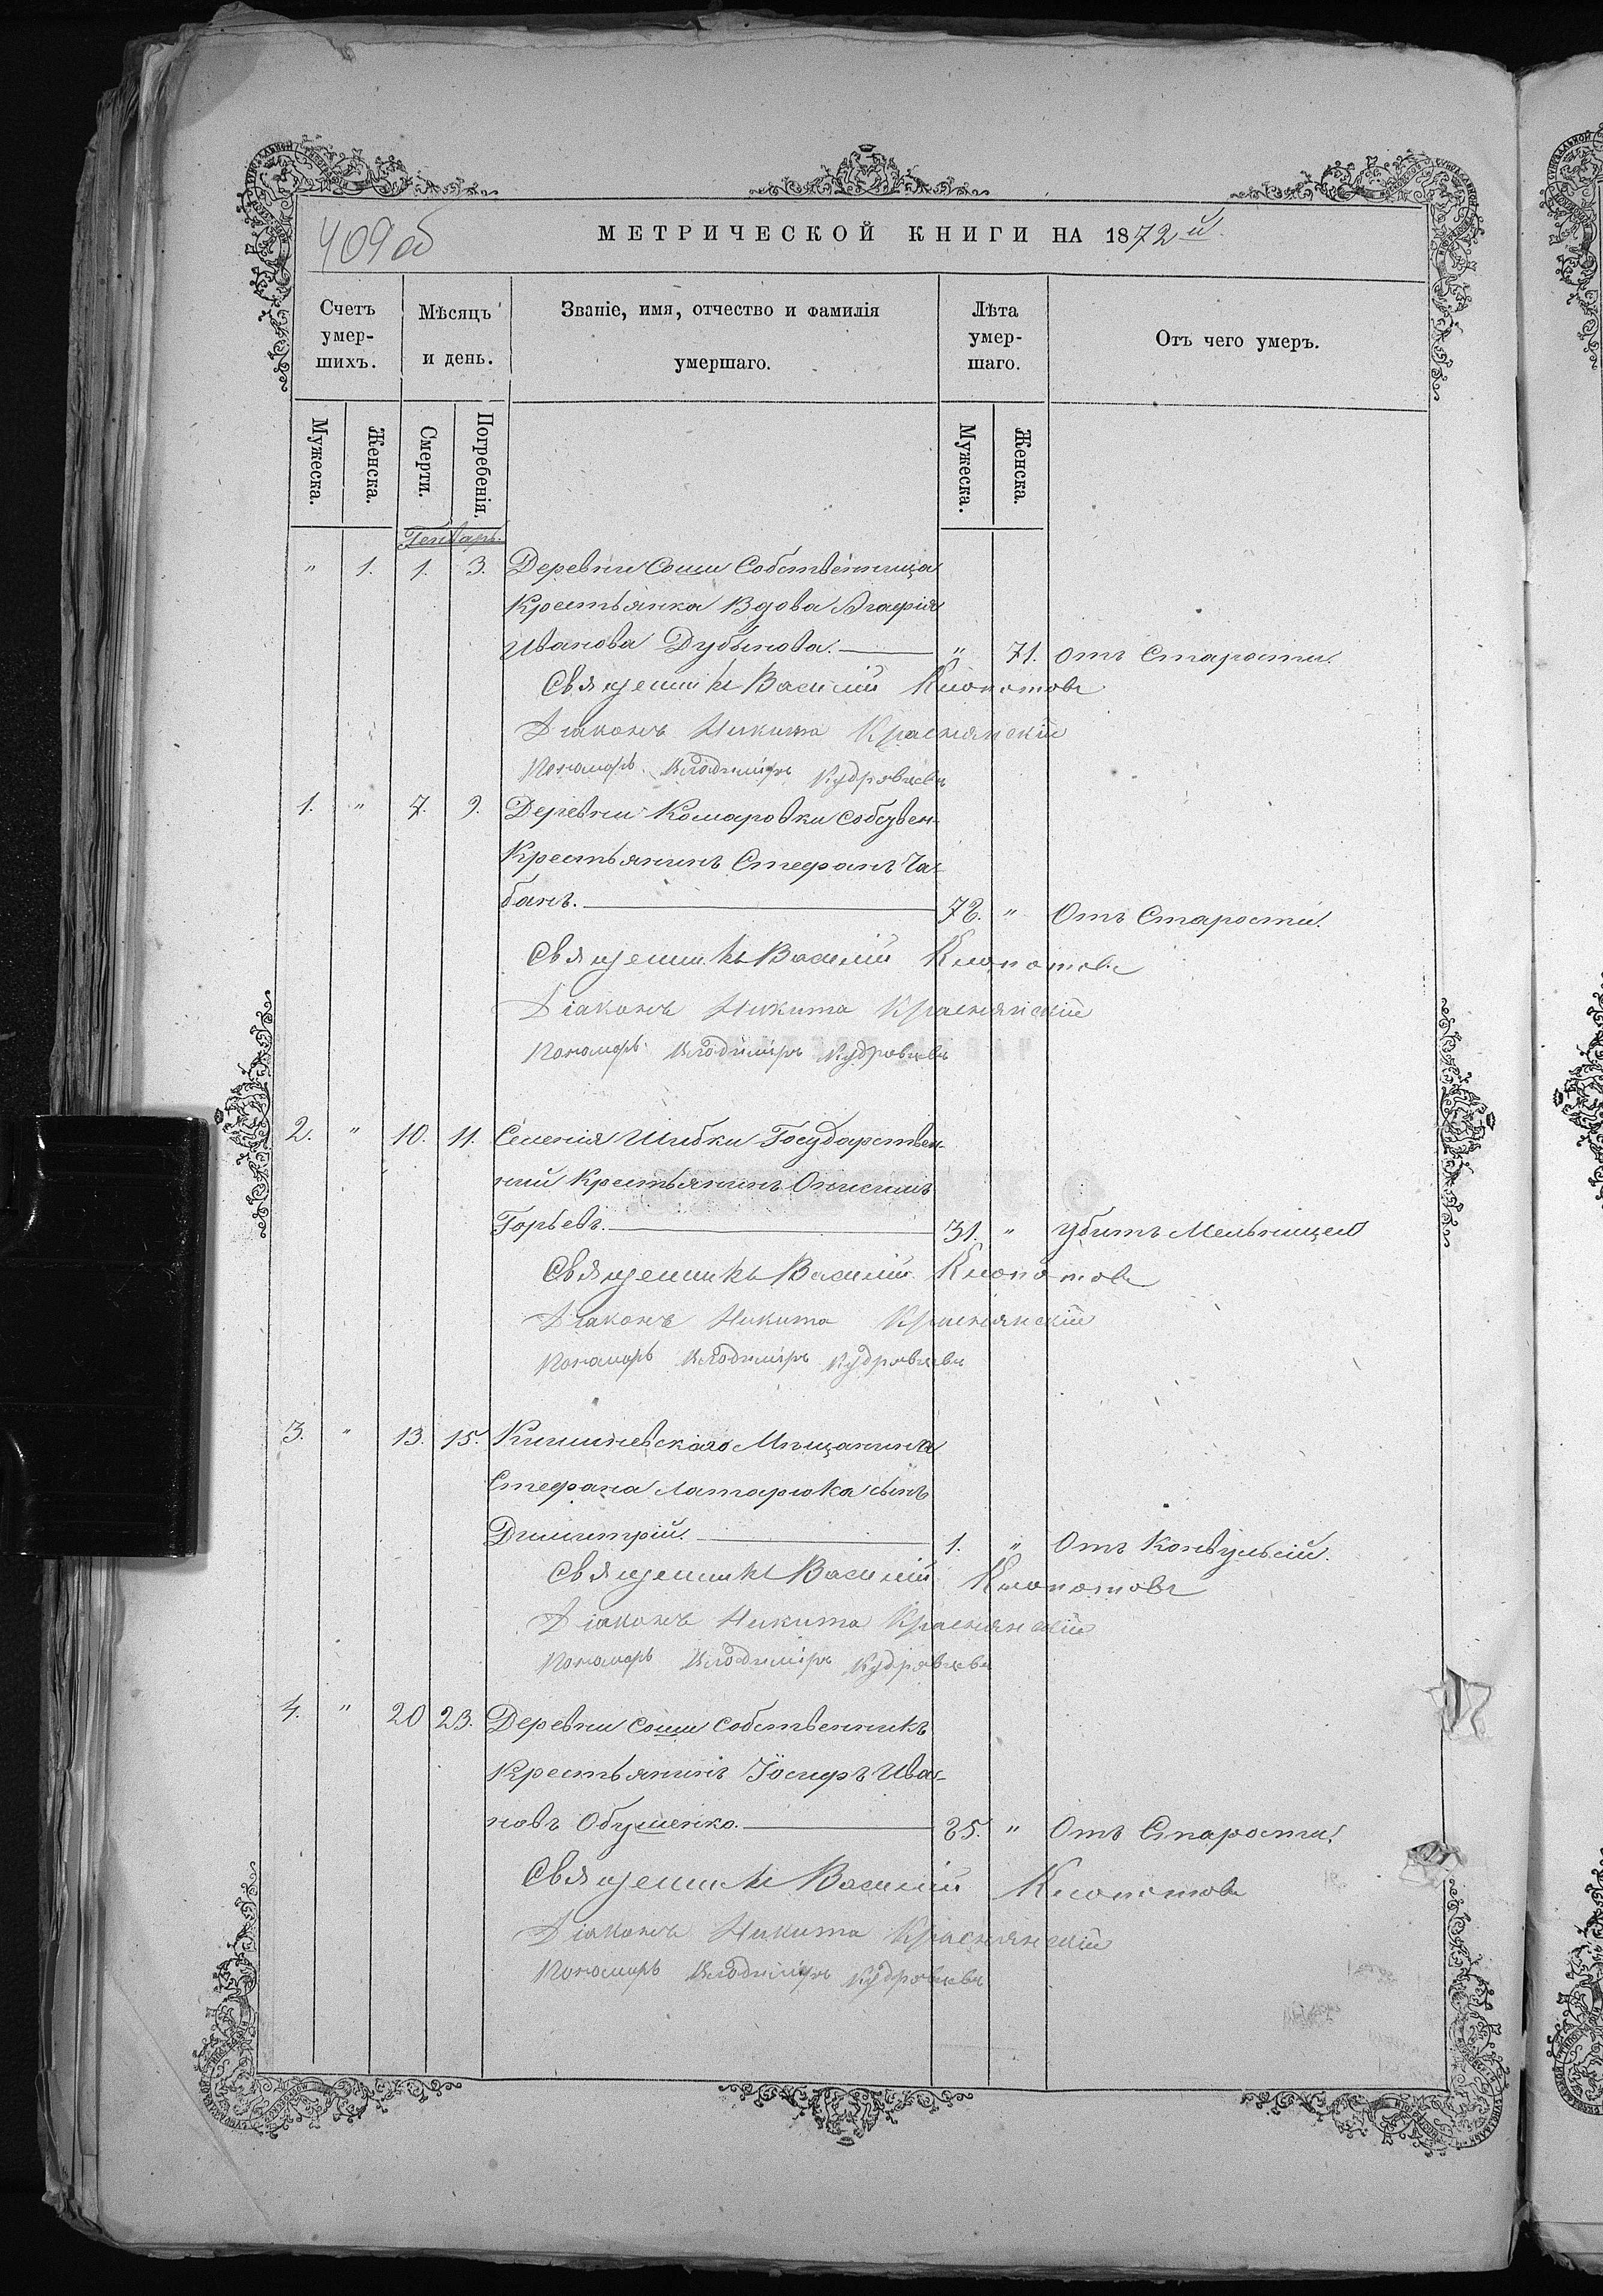 409об
МЕТРИЧЕСКОЙ КНИГИ НА 1872й
Счетъ умер-шихъ.
Мѣсяцъ и день.
Званіе, имя, отчество и фамилія умершаго.
Лѣта умер-шаго.
Отъ чего умеръ.
Мужеска. Женска. Смерти. Погребенія. Мужеска. Женска.
Генварь.
" 1. 1. 3. Деревни Соши Собственница
Крестьянка Вдова Агафія
Иванова Дубынова. " 71. отъ Старости.
Священникъ Василій Клопотовъ
Діаконъ Никита Краснянскій
Пономарь Владиміръ Кудрявцевъ
1. " 7. 9. Деревни Комаровки собствен-
Крестьянинъ Стефанъ Ча-
банъ. 72. " Отъ Старости.
Священникъ Василій Клопотовъ
Діаконъ Никита Краснянскій
Пономарь Владиміръ Кудрявцевъ
2. " 10. 11. Селенія Шибки Государствен-
ний Крестьянинъ Онисимъ
Горбевъ. 31. " Убитъ Мельницею
Священникъ Василій Клопотовъ
Діаконъ Никита Краснянскій
Пономарь Владиміръ Кудрявцевъ
3. " 13. 15. Кишиневскаго Мѣщанина
Стефана Латарюка сынъ
Димитрій. 1. " Отъ Конвульсій.
Священникъ Василій Клопотовъ
Діаконъ Никита Краснянскій
Пономарь Владиміръ Кудрявцевъ
4. " 20 23. Деревни Соши собственникъ
Крестьянинъ Іосифъ Ива-
новъ Обушенко. 85. " Отъ Старости.
Священникъ Василій Клопотовъ
Діаконъ Никита Краснянскій
Пономарь Владиміръ Кудрявцевъ